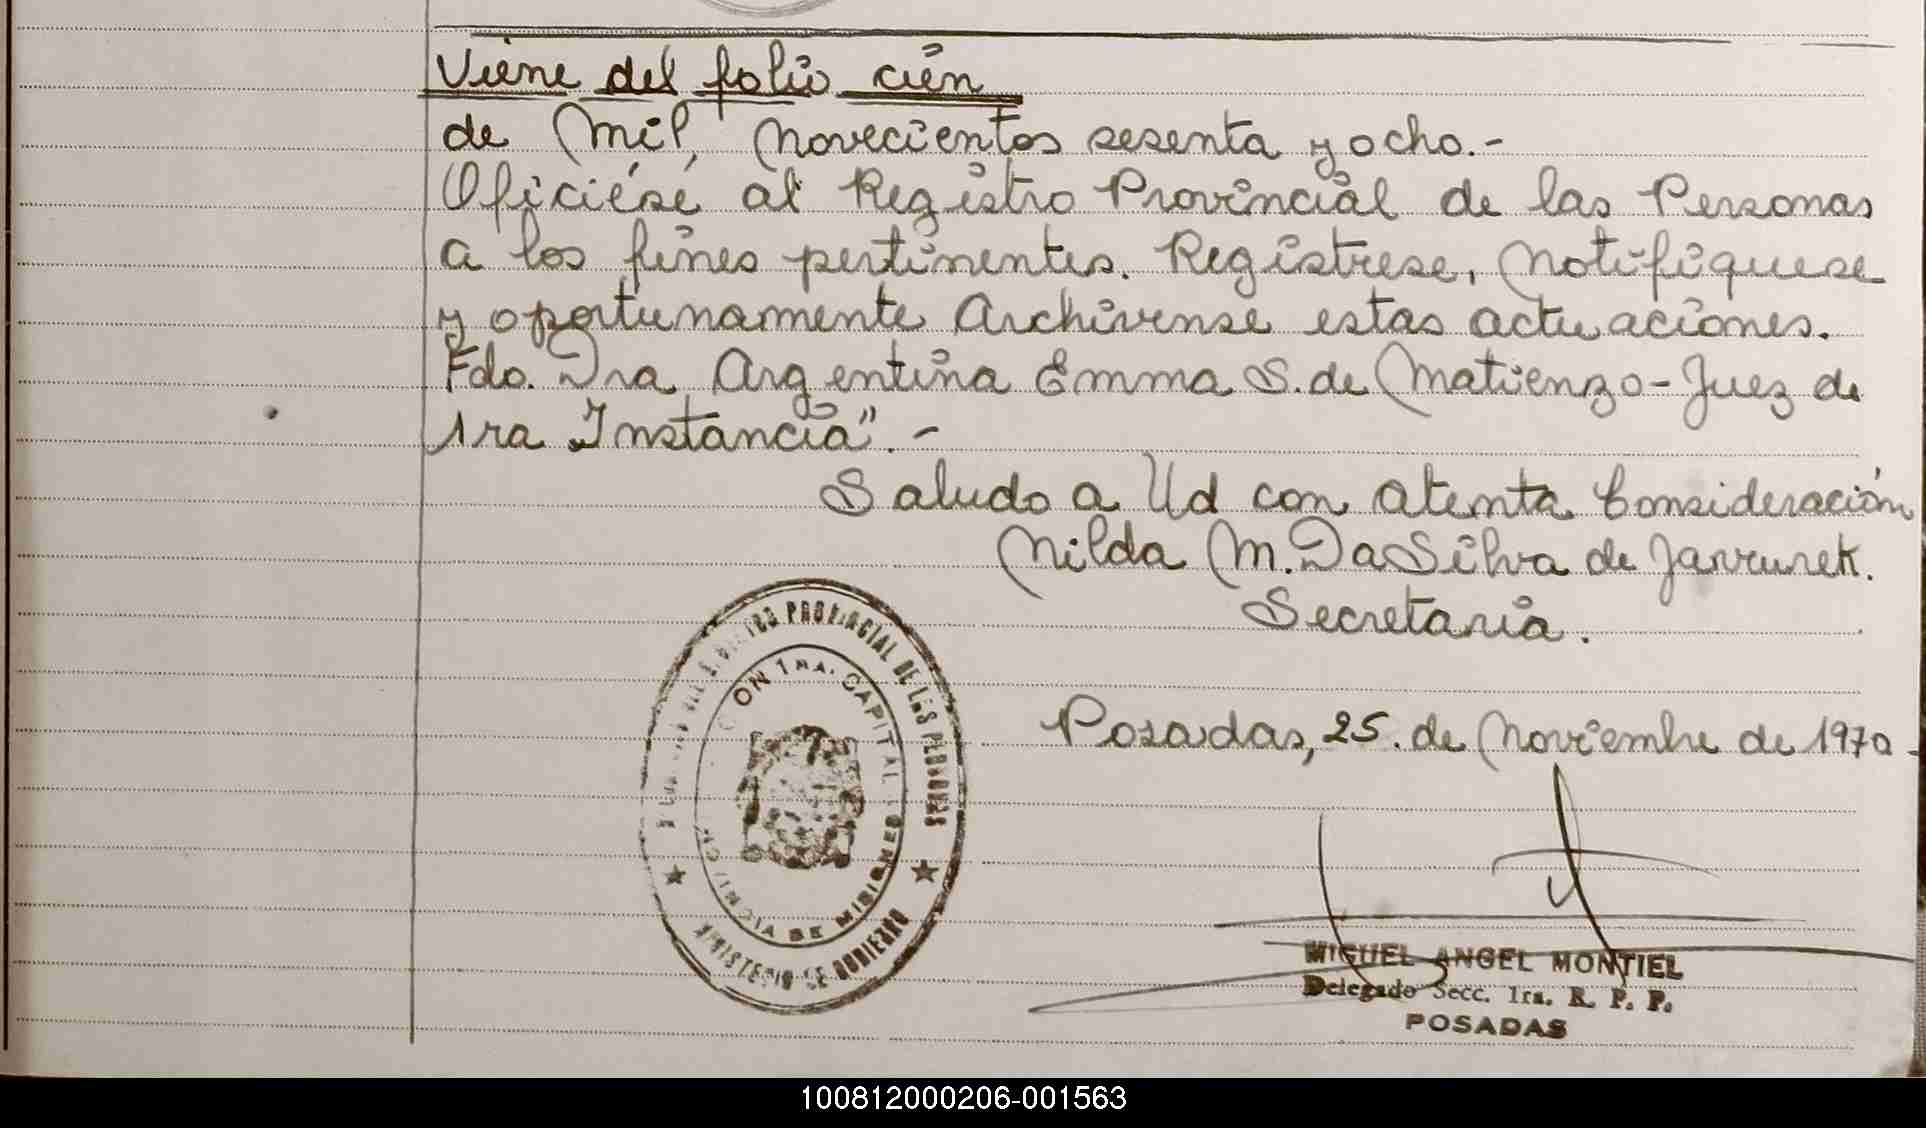 Viene del folio cien
de Mil, Novecientos sesenta y ocho.-
Oficiése al Registro Provincial de las Personas
a los fines pertinentes. Registrese, Notifiquese
y oportunamente Archivense estas actuaciones.
Fdo. Dra Argentina Emma S. de Matienzo - Juez de
1ra Instancia".-
Saludo a Ud con atenta Consideración
Nilda M. DaSilva de Janrurek.
Secretaria.
PROVINCIAL DE LAS PERSONAS
1RA. CAPITAL
PROVINCIA DE MISIONES
MINISTERIO DE GOBIERNO
Posadas, 25. de Noviembre de 1970-
MIGUEL ANGEL MONTIEL
Delegado Secc. 1ra. R. P. P.
POSADAS
100812000206-001563